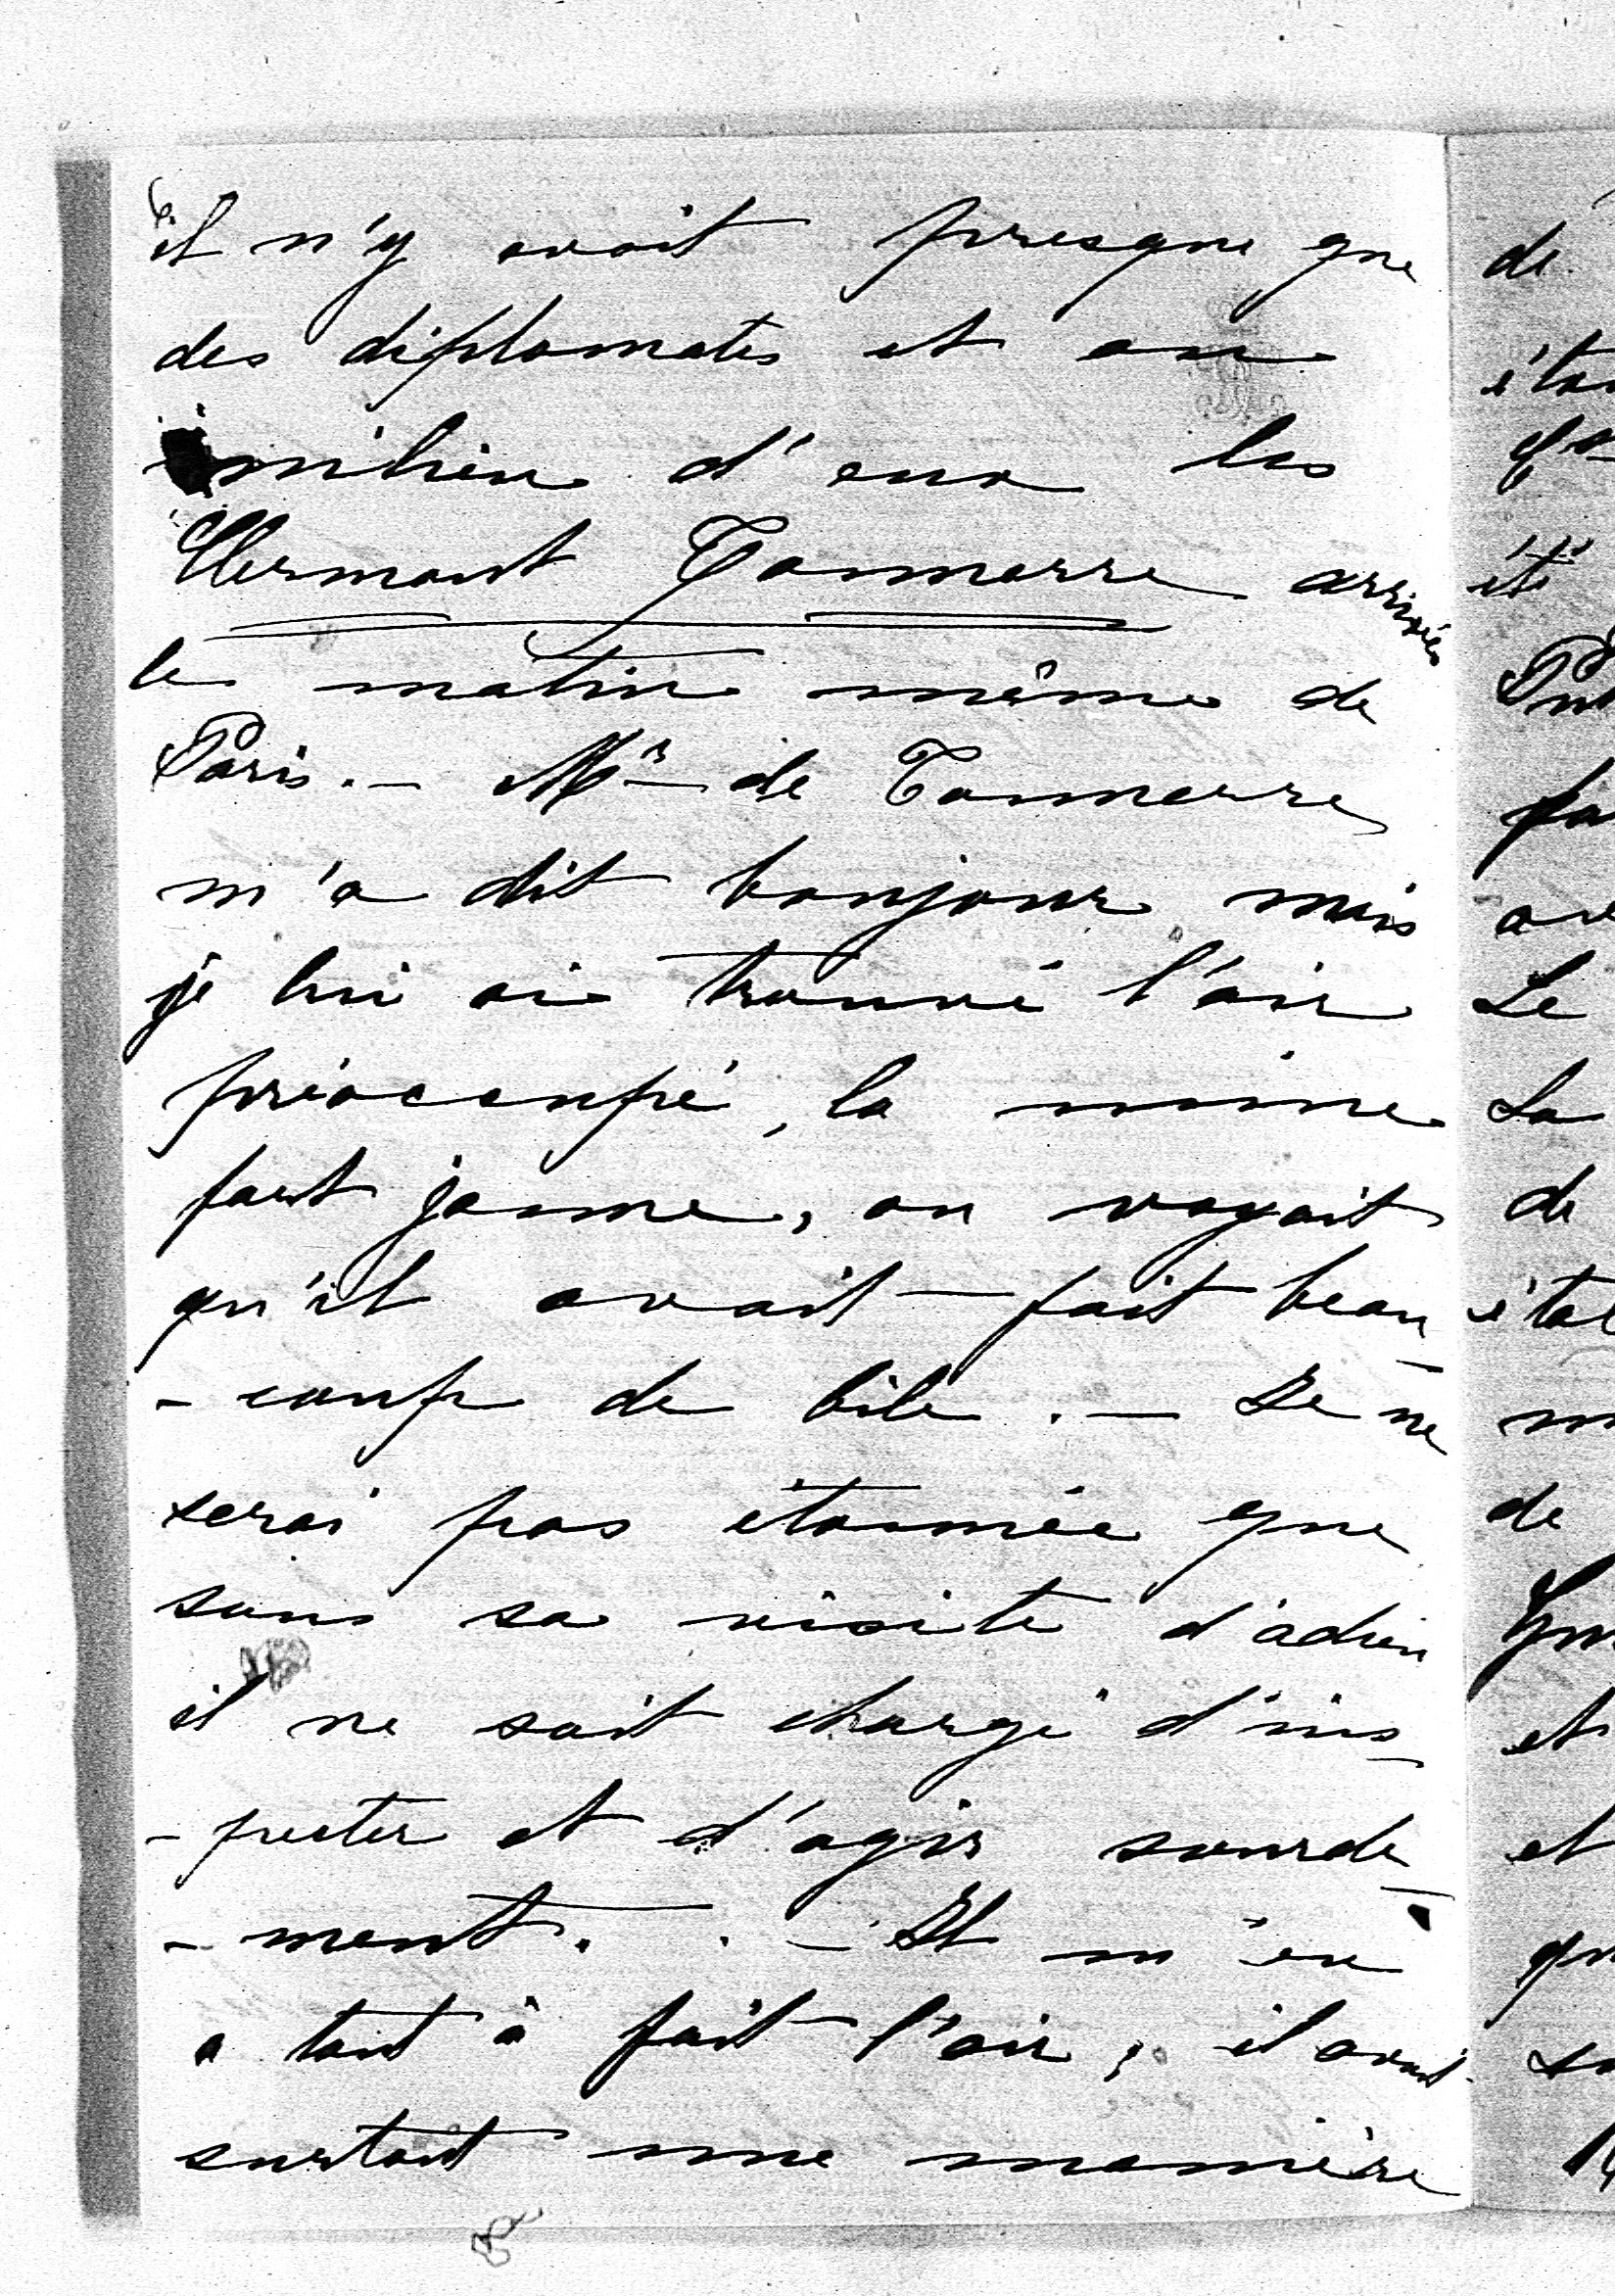 il n'y avait presque que
des diplomates et au
milieu d'eux les
Clermont Tonnerre arrivés
le matin même de
Paris. — Mr de Tonnerre
m'a dit bonjour mais
je lui ai trouvé l'air
préoccupé, la mine
fort jaune, on voyait
qu'il avait fait beau
- coup de bile. — Je ne
serai pas étonnée que
sous sa visite d'adieu
il ne soit chargé d'ins
- pecter et d'agir sourde
- ment. — Il m'en
a tout à fait l'air, il avait
surtout une manière
de
été
Le
La
de
de
et
et